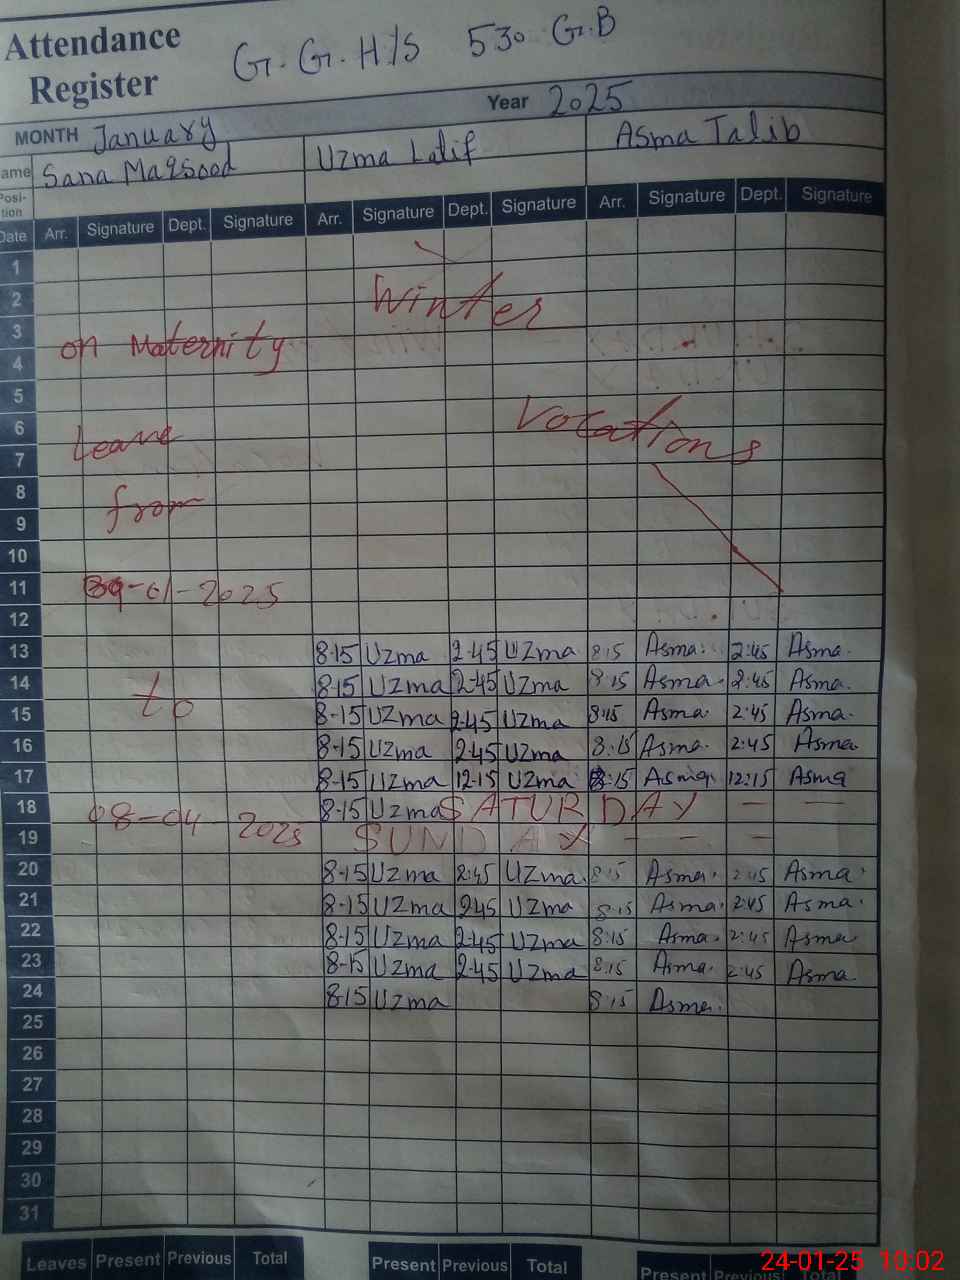 Attendance Register G.G.H/S 530 G.B
MONTH January Year 2025
Name Sana Maqsood Uzma Latif Asma Talib
Position
Date Arr. Signature Dept. Signature Arr. Signature Dept. Signature Arr. Signature Dept. Signature
1
2 Winter
3 on Maternity
4
5
6 Leave Vocations
7
8 from
9
10
11 09-01-2025
12
13 8-15 Uzma 2-45 Uzma 8:15 Asma. 2:45 Asma.
14 to 8-15 Uzma 2-45 Uzma 8:15 Asma. 2:45 Asma.
15 8-15 Uzma 2-45 Uzma 8:15 Asma. 2:45 Asma.
16 8-15 Uzma 2-45 Uzma 8:15 Asma. 2:45 Asma
17 8-15 Uzma 12-15 Uzma 8:15 Asma. 12:15 Asma
18 08-04-2025 8-15 Uzma SATURDAY — —
19 SUNDAY — — —
20 8-15 Uzma 2:45 Uzma. 8:15 Asma. 2:45 Asma.
21 8-15 Uzma 2-45 Uzma 8:15 Asma. 2:45 Asma.
22 8-15 Uzma 2-45 Uzma 8:15 Asma. 2:45 Asma
23 8-15 Uzma 2-45 Uzma 8:15 Asma. 2:45 Asma.
24 8-15 Uzma 8:15 Asma.
25
26
27
28
29
30
31
Leaves Present Previous Total Present Previous Total Present Previous Total
24-01-25 10:02